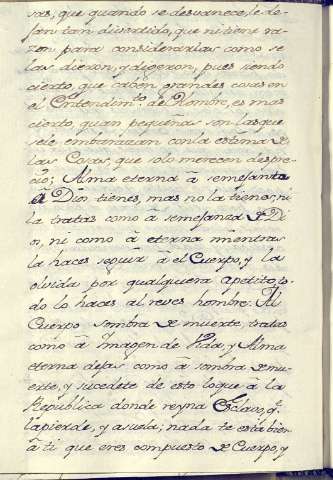 sas, que quando se desvanece, le de-
jan tan divertido, que ni tiene ra-
zon para considerarlas como se
las dieron, y digeron, pues siendo
cierto, que caben grandes cosas en
el Entendim.to de Hombre, es mas
cierto quan pequeñas son las que
se le embarazan con la estima de
las Cosas, que solo merecen despre-
cio; Alma eterna á semejanza
á Dios tienes, mas no la tienes, ni
la tratas como á semejanza de Di
os, ni como á eterna mientras
la haces seguir á el Cuerpo, y la
olvida por qualquiera apetito, to-
do lo haces al reves hombre. Al
Cuerpo sombra de muerte tratas
como á Imagen de Vida, y Alma
eterna dejas como á sombra de mu-
erte, y sucedete de esto loque á la
Republica donde reyna Esclavo, q.e
la pierde, y asuela; nada te esta bien
á ti que eres compuesto de Cuerpo, y